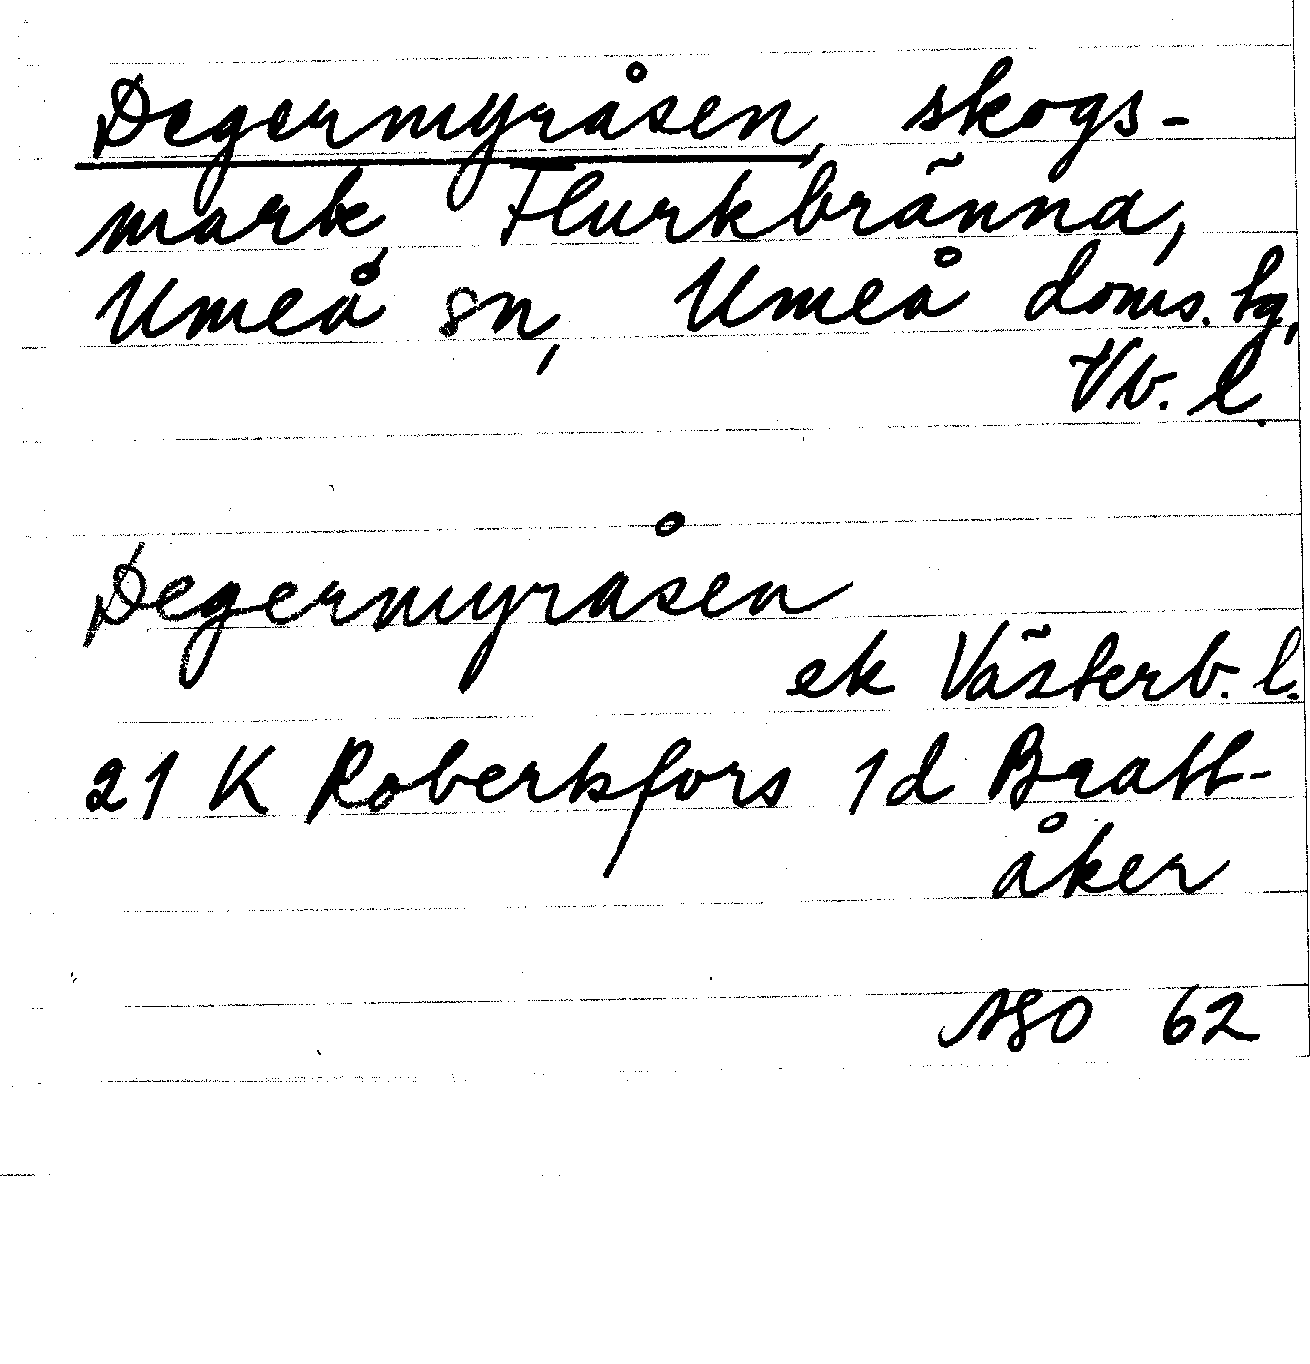 Degermyråsen, skogs-
mark, Flurkbränna,
Umeå sn, Umeå doms. tg,
Vb. l.
Degermyråsen
ek Västerb. l.
21 K Robertsfors 1d Bratt-
åker
ASO 62